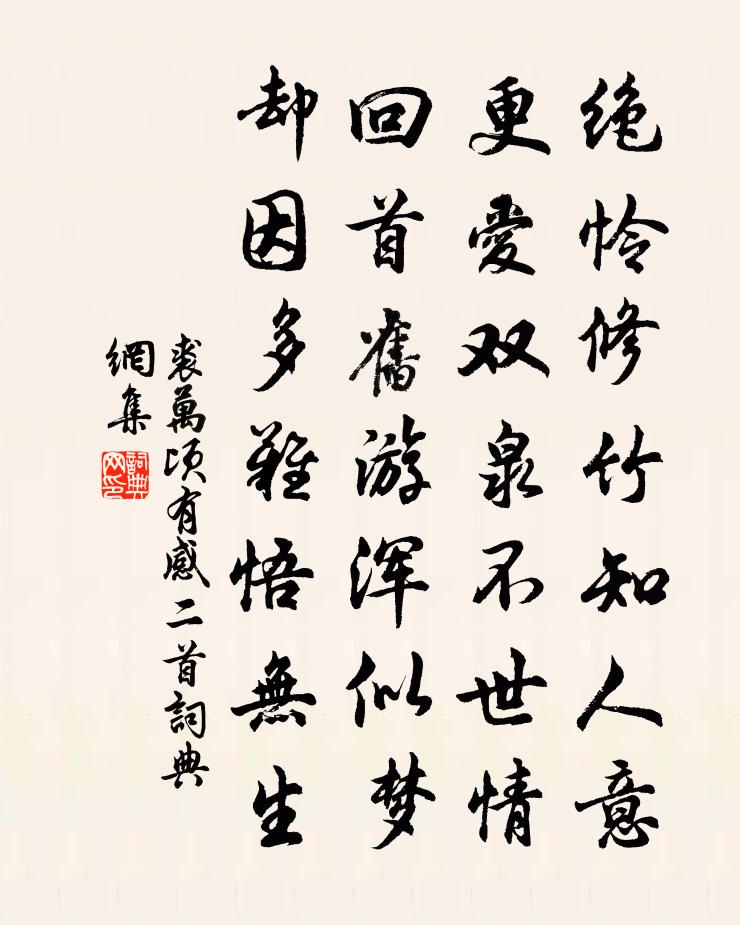 绝怜修竹知人意
更爱双泉不世情
回首舊游浑似梦
却因多难悟無生
裘萬顷有感二首詞典
網集
詞典
网印